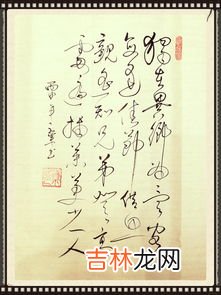 獨在異鄉為异客
每逢佳節倍思
親遙知兄弟登高
處遍插茱萸少一人
吉林龙网